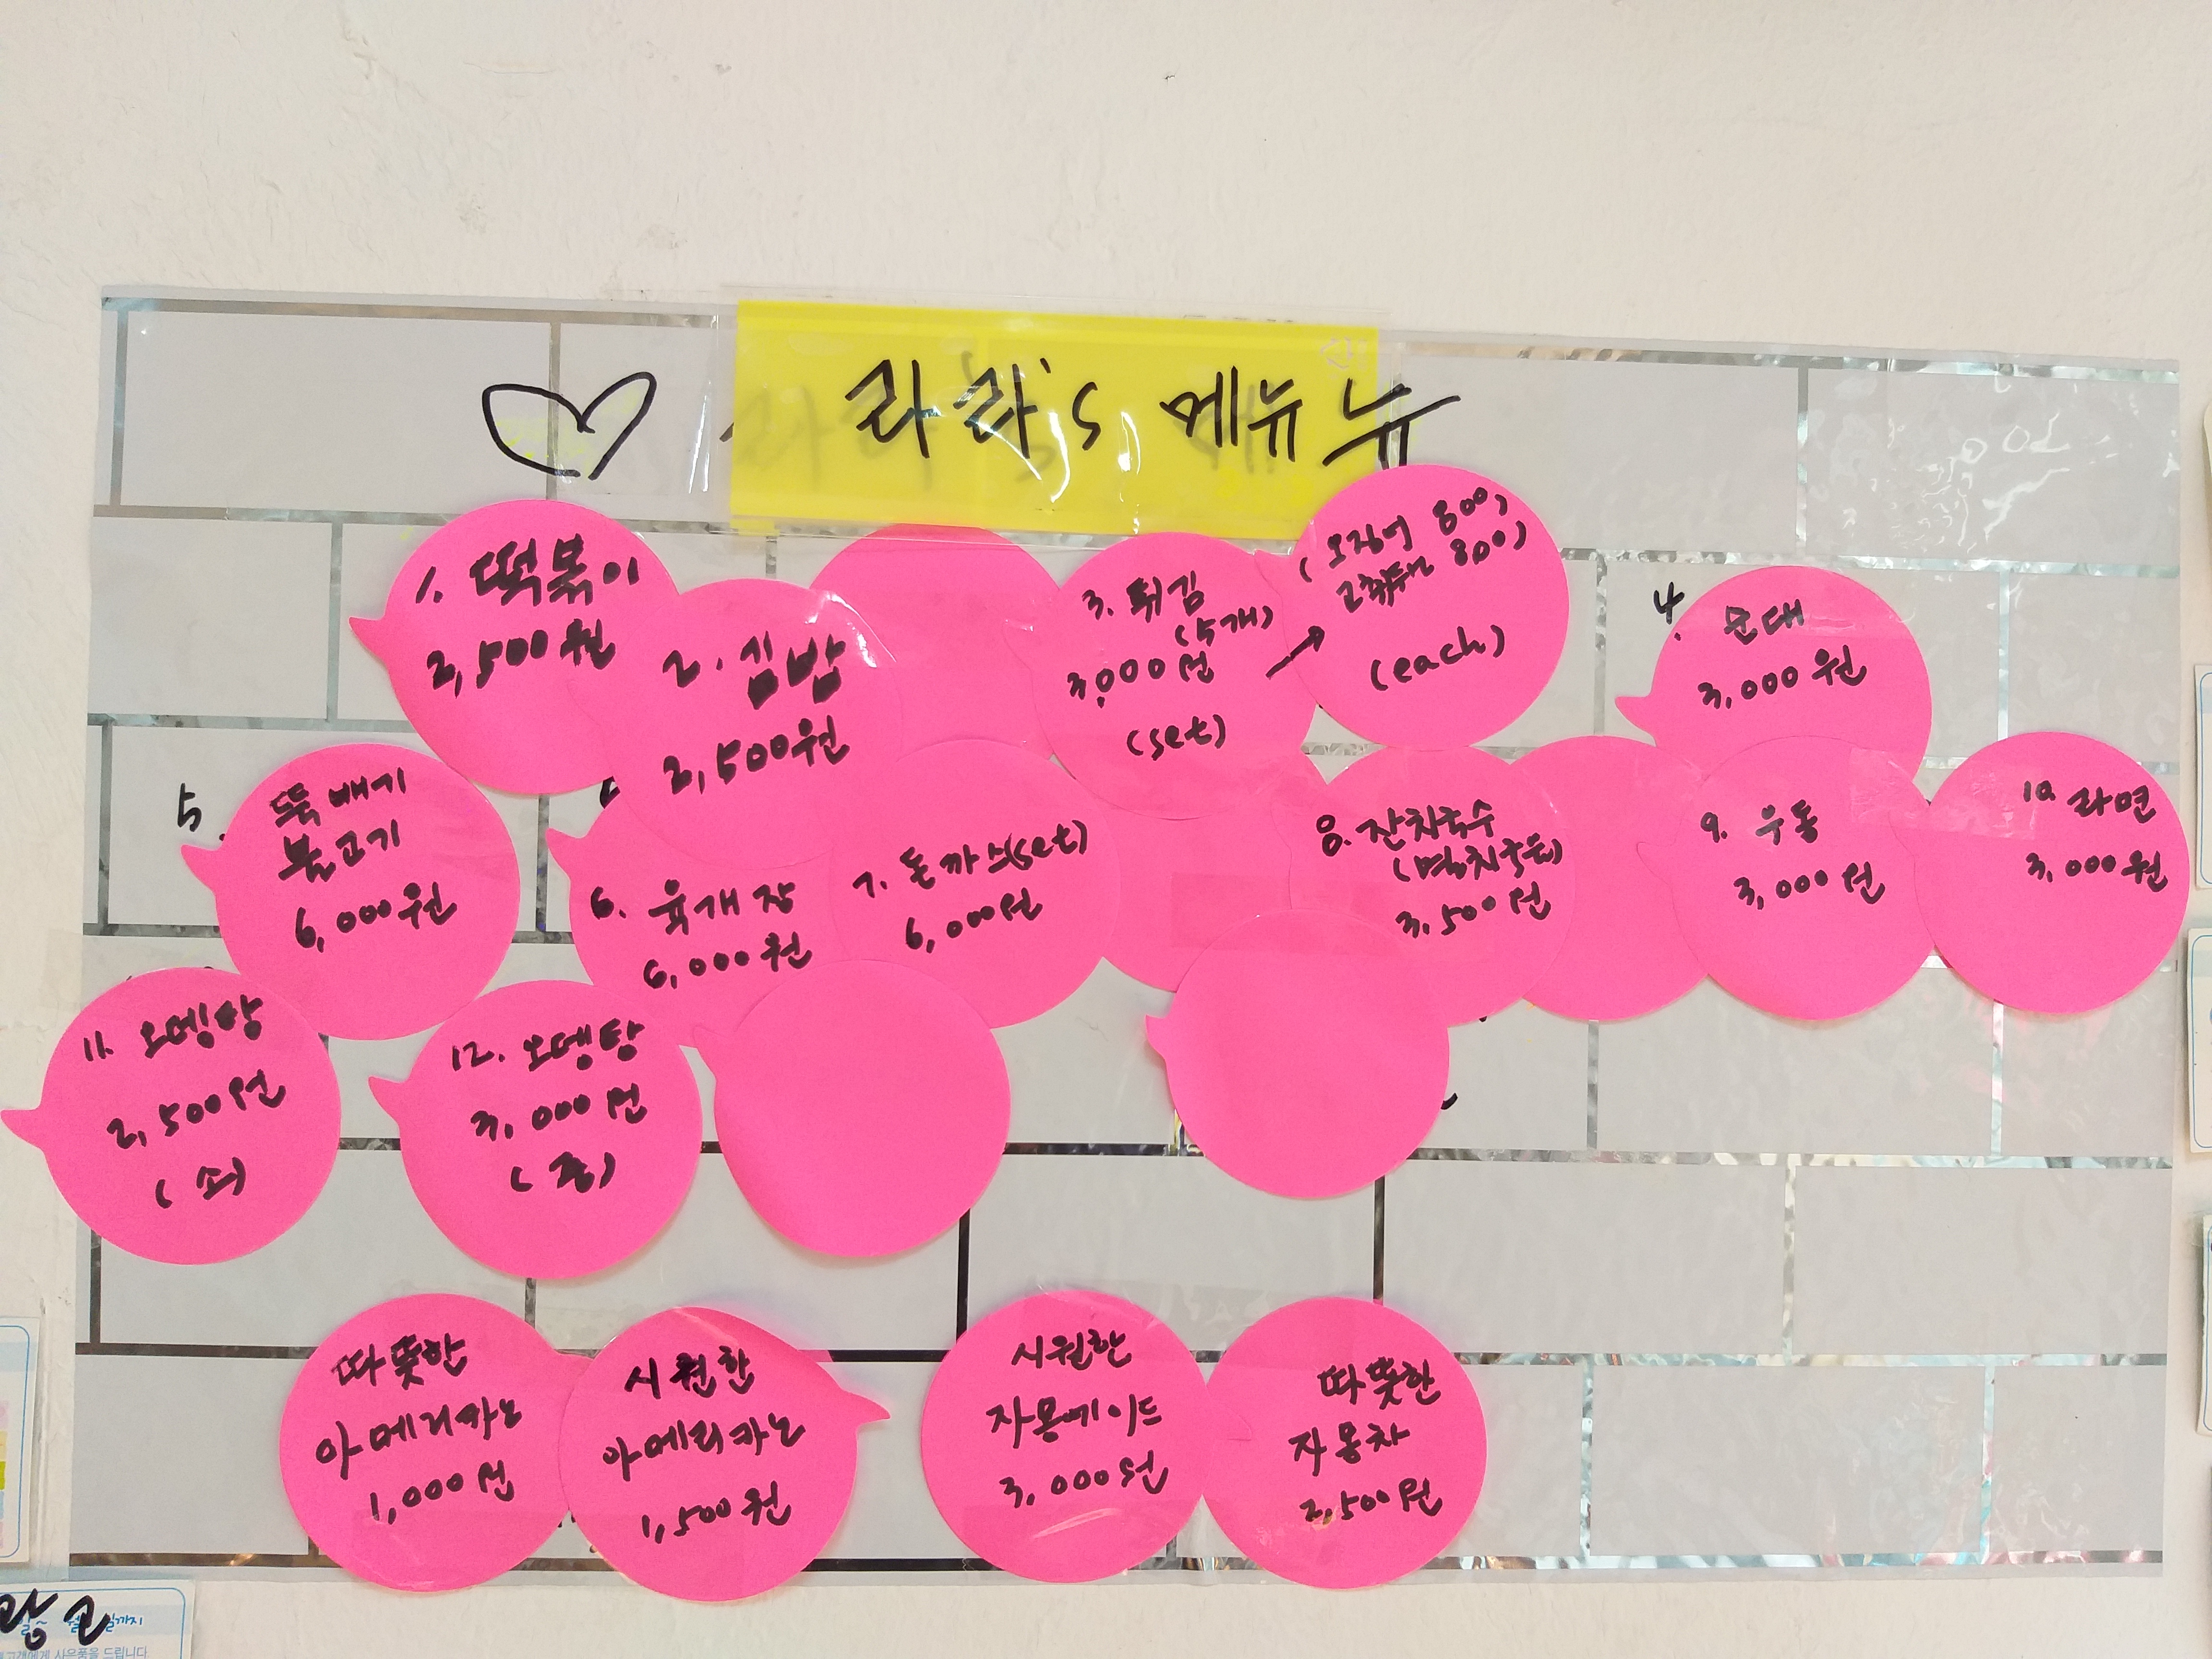 라라's 메뉴
1. 떡볶이
2,500원
2. 김밥
2,500원
3. 튀김
(5개)
3,000원
(set)
(오징어 800,
고추튀김 800)
(each)
4. 순대
3,000원
5. 뚝배기
불고기
6,000원
6. 육개장
6,000원
7. 돈까스(set)
6,000원
8. 잔치국수
(멸치국물)
3,500원
9. 우동
3,000원
10. 라면
3,000원
11. 오뎅탕
2,500원
(소)
12. 오뎅탕
3,000원
(중)
따뜻한
아메리카노
1,000원
시원한
아메리카노
1,500원
시원한
자몽에이드
3,000원
따뜻한
자몽차
2,500원